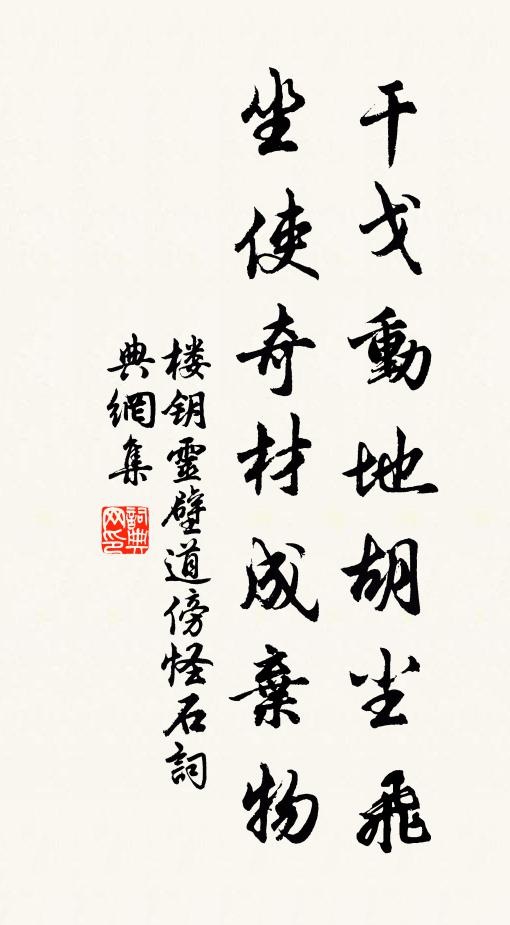 干戈動地胡尘飛
坐使奇材成棄物
楼钥靈壁道傍怪石詞
典網集
詞典网印